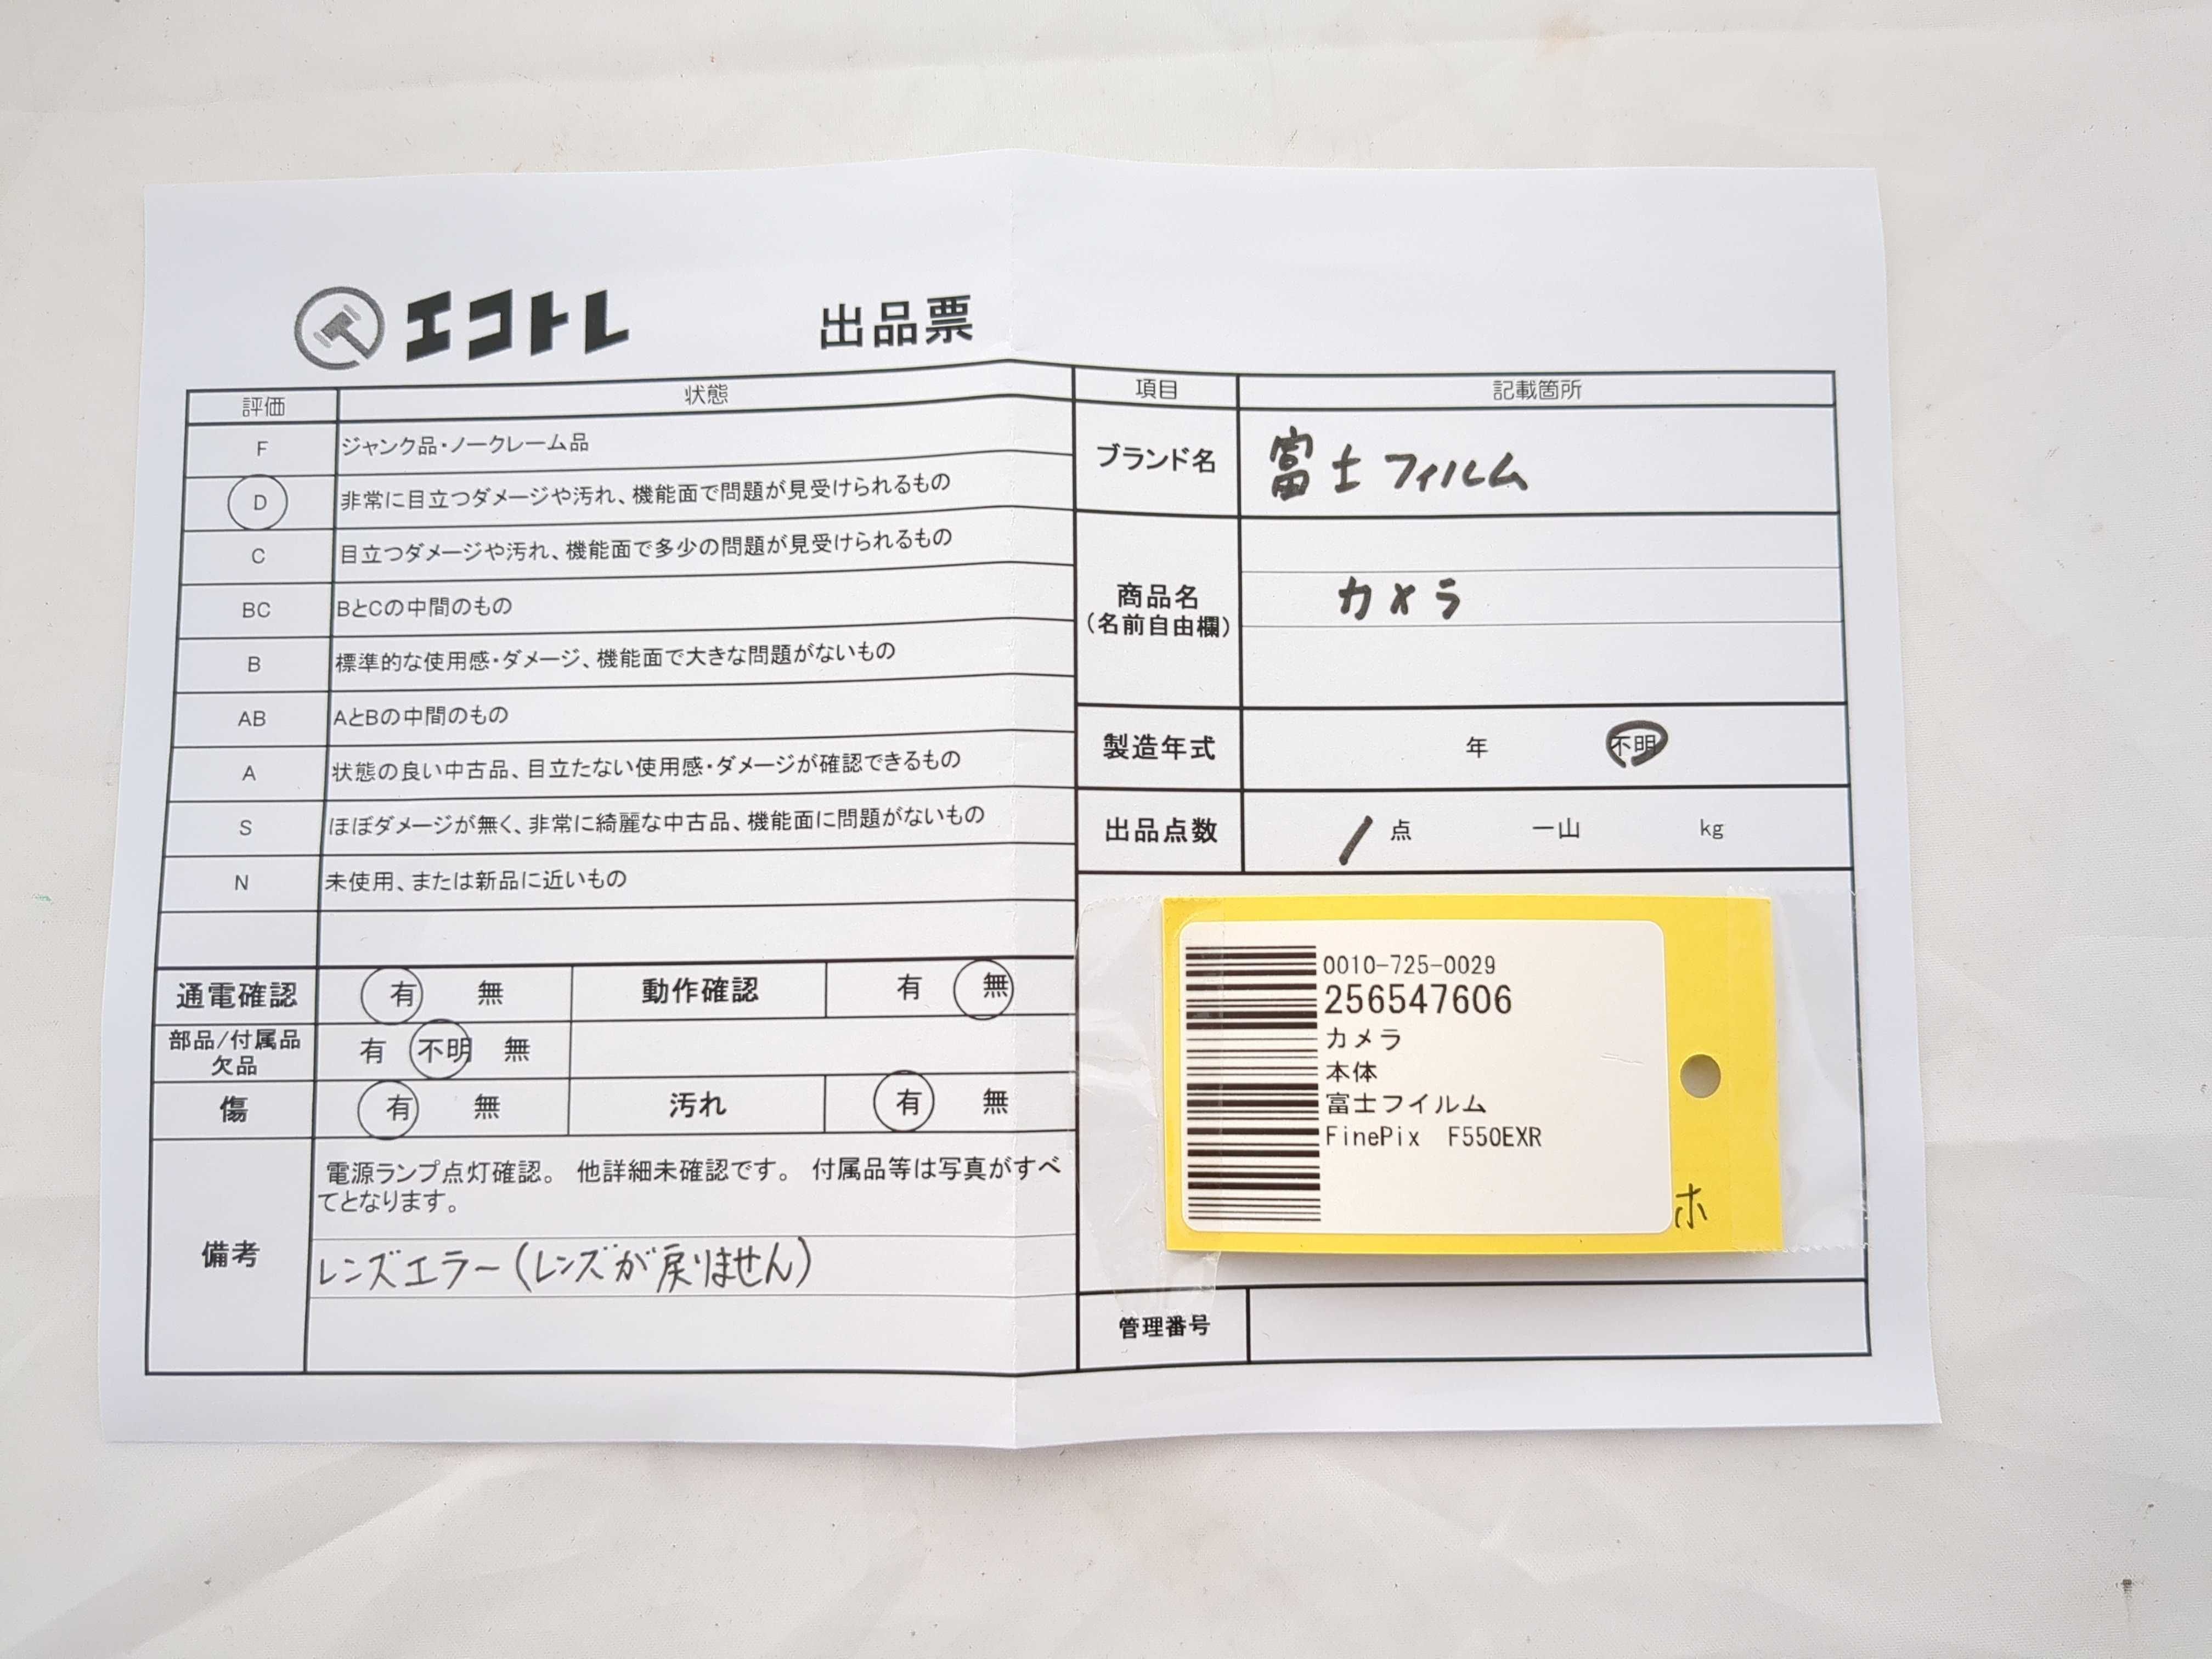 エコトレ 出品票
評価 状態
F ジャンク品・ノークレーム品
D 非常に目立つダメージや汚れ、機能面で問題が見受けられるもの
C 目立つダメージや汚れ、機能面で多少の問題が見受けられるもの
BC BとCの中間のもの
B 標準的な使用感・ダメージ、機能面で大きな問題がないもの
AB AとBの中間のもの
A 状態の良い中古品、目立たない使用感・ダメージが確認できるもの
S ほぼダメージが無く、非常に綺麗な中古品、機能面に問題がないもの
N 未使用、または新品に近いもの
通電確認 有 無 動作確認 有 無
部品/付属品
欠品 有 不明 無
傷 有 無 汚れ 有 無
備考
電源ランプ点灯確認。 他詳細未確認です。 付属品等は写真がすべ
てとなります。
レンズエラー(レンズが戻りません)
項目 記載箇所
ブランド名 富士フィルム
商品名
(名前自由欄)
カメラ
製造年式 年 不明
出品点数 1 点 一山 kg
0010-725-0029
256547606
カメラ
本体
富士フイルム
FinePix F550EXR
ホ
管理番号